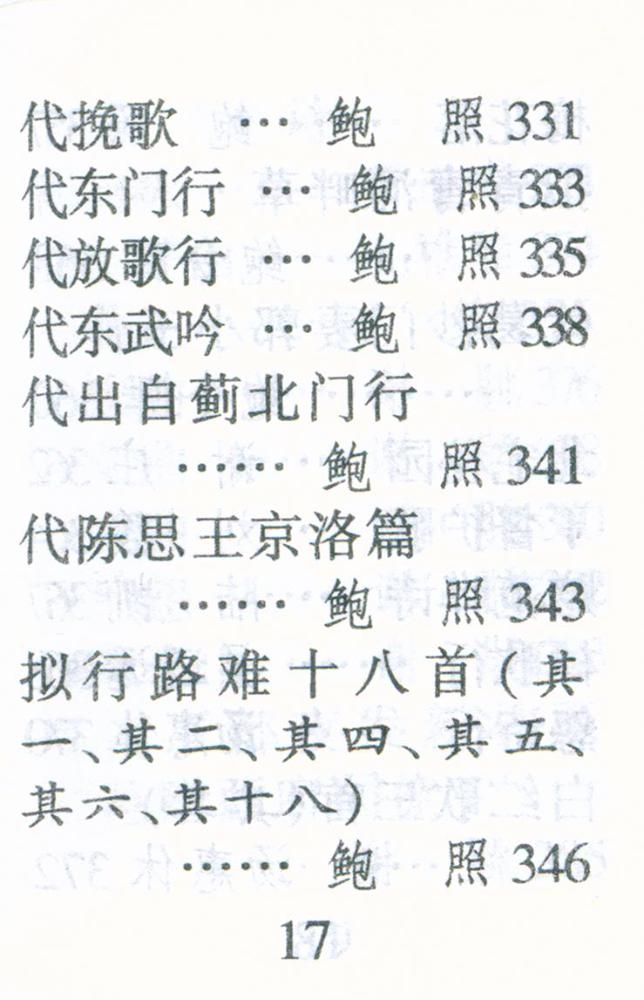 代挽歌 … 鲍 照 331
代东门行 … 鲍 照 333
代放歌行 … 鲍 照 335
代东武吟 … 鲍 照 338
代出自蓟北门行
…… 鲍 照 341
代陈思王京洛篇
…… 鲍 照 343
拟行路难十八首(其
一、其二、其四、其五、
其六、其十八)
…… 鲍 照 346
17